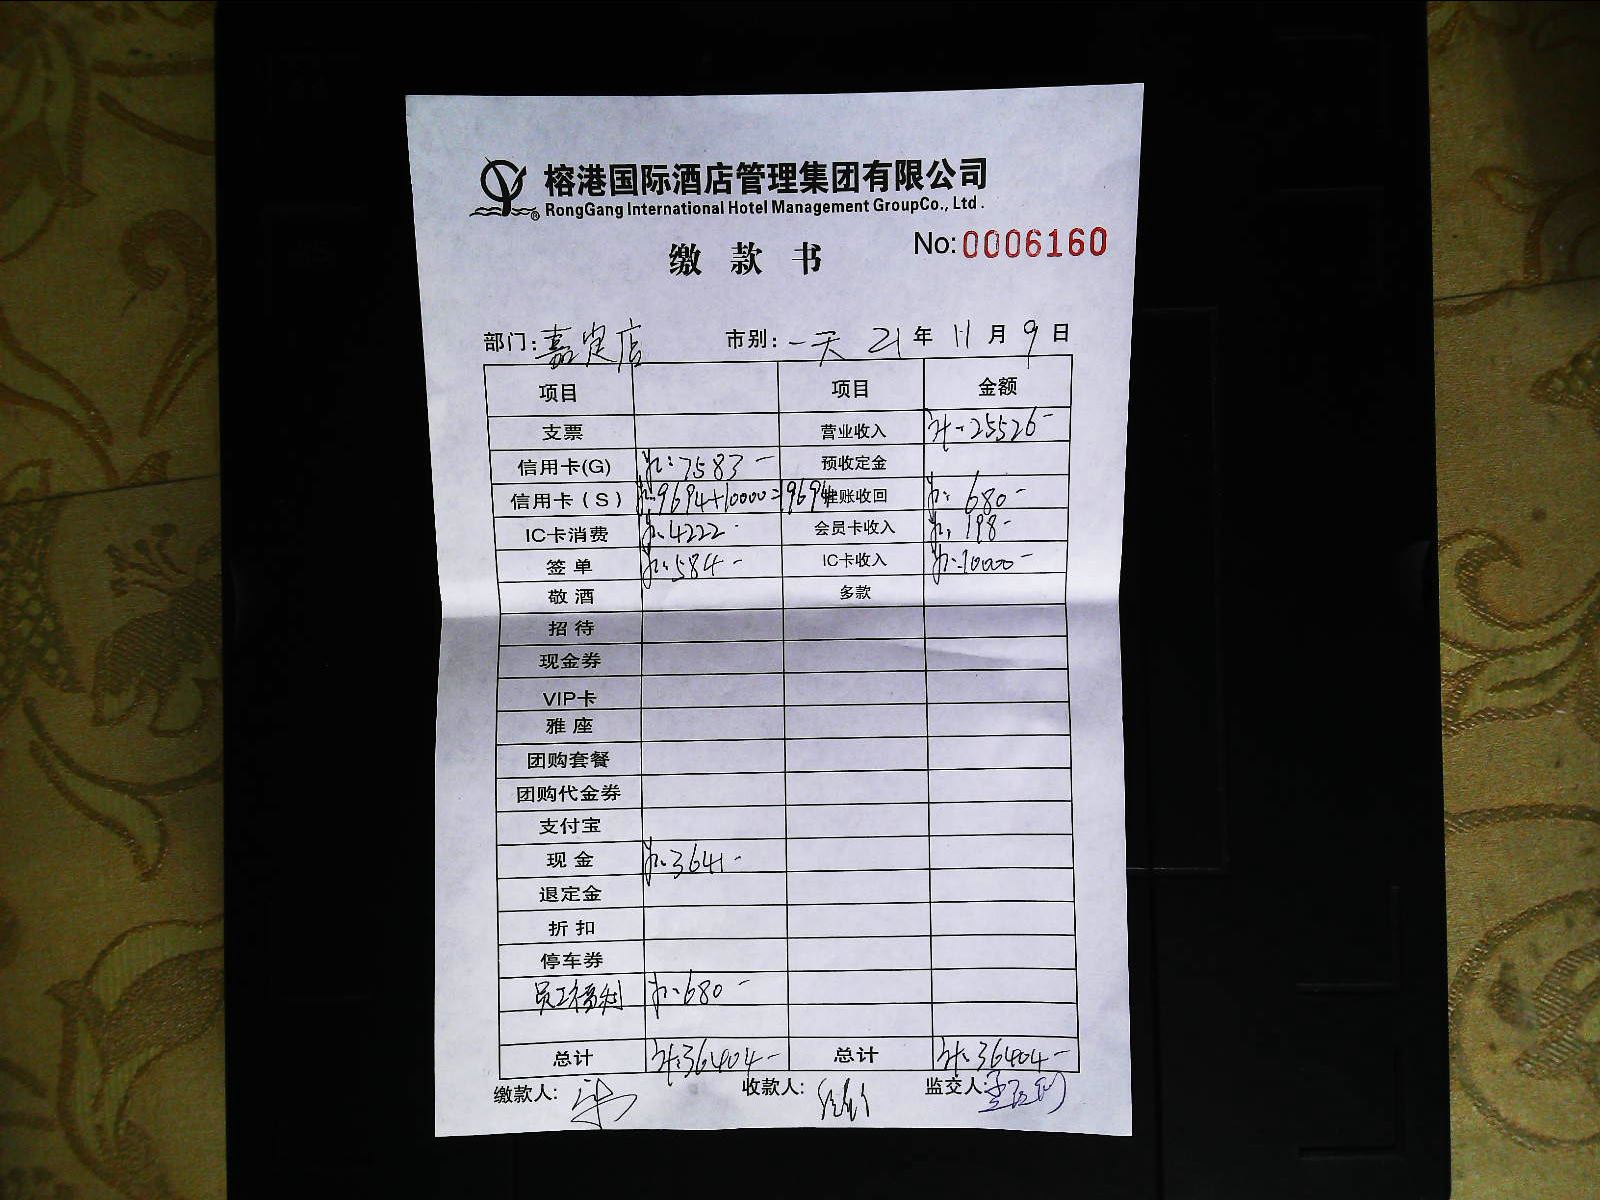 榕港国际酒店管理集团有限公司
RongGang International Hotel Management GroupCo., Ltd.
缴款书
No:0006160
部门:嘉定店 市别:一天 21年11月9日
项目 项目 金额
支票 营业收入 计:25526-
信用卡(G) 计:7583- 预收定金
信用卡(S) 计:9694+10000=19694 挂账收回 计:680-
IC卡消费 计:4222- 会员卡收入 计:198-
签单 计:584- IC卡收入 计:10000-
敬酒 多款
招待
现金券
VIP卡
雅座
团购套餐
团购代金券
支付宝
现金 计:3641-
退定金
折扣
停车券
员工福利 计:680-
总计 计:36404- 总计 计:36404-
缴款人: 收款人: 监交人: